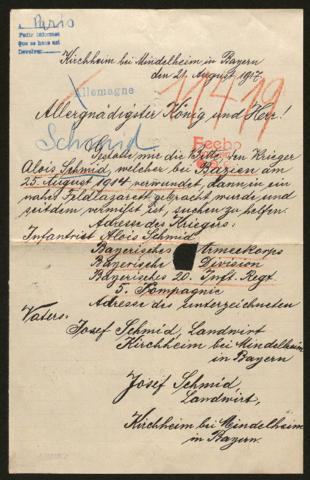 a Paris
Pedir informes
Que se haga así
Devolver
Kirchheim bei Mindelheim in Bayern
den 21. August 1917.
Allemagne
11419
Allergnädigster König und Herr!
Schmid
Fecho
Gestatte mir die Bitte, den Krieger
Alois Schmid, welcher bei Bazien am
25. August 1914 verwundet, dann in ein
nahes Feldlazarett gebracht wurde, und
seitdem vermißt ist, suchen zu helfen.
Adresse des Kriegers:
Infanterist Alois Schmid
Bayerisches Armeekorps
Bayerische Division
Bayerisches 20. Inft. Regt.
5. Kompagnie
Adresse des unterzeichneten
Vaters:
Josef Schmid, Landwirt
Kirchheim bei Mindelheim
in Bayern
Josef Schmid,
Landwirt,
Kirchheim bei Mindelheim
in Bayern.